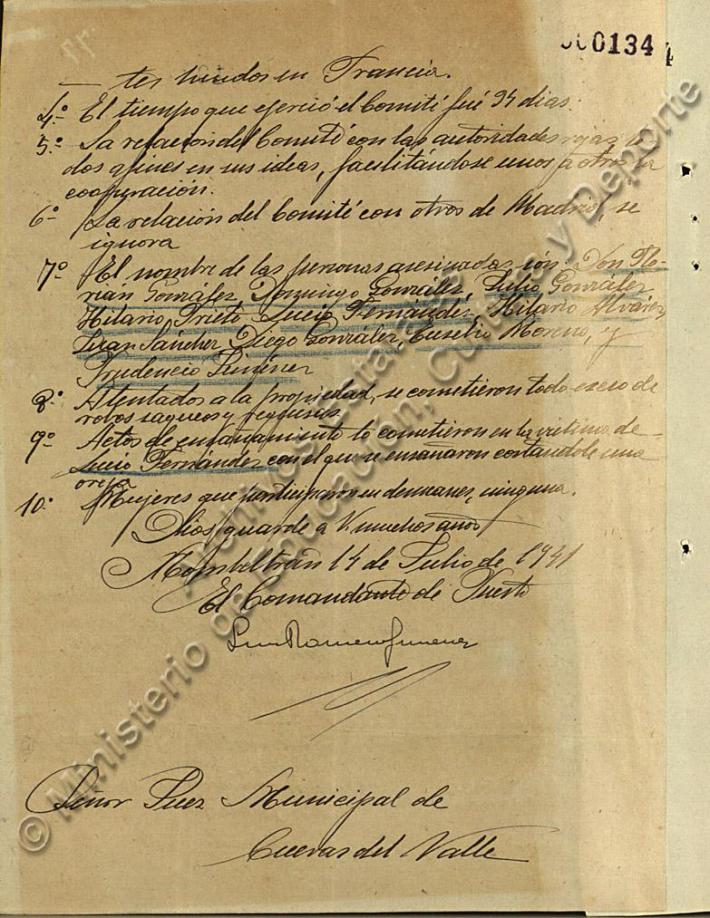 000134
— tes huidos en Francia.
4º. El tiempo que ejerció el Comité fué 94 dias.
5º. La relación del Comité con las autoridades rojas, to-
dos afines en sus ideas, facilitándose unos a otros la
cooperación.
6º La relación del Comité con otros de Madrid, se
ignora
7º El nombre de las personas asesinadas son: Don
González, Domingo González, Julio González
Hilario Prieto, Lucio Fernández, Hilario Alvárez
Juan Sánchez Diego González, Eusebio Moreno, y
Prudencio Jiménez
8º. Atentados a la propiedad, se cometieron toda clase de
robos saqueos y
9º. Actos de ensañamiento lo cometieron en la victima de-
Lucio Fernández con el que se ensañaron cortándole una
oreja
10º. Mujeres que participaron en desmanes, ninguna.
Dios guarde a V. muchos años
Mombeltrán 14 de Julio de 1941
El Comandante de Puesto
Luis Romero Jimenez
Señor Juez Municipal de
Cuevas del Valle
© Ministerio de Educación, Cultura y Deporte